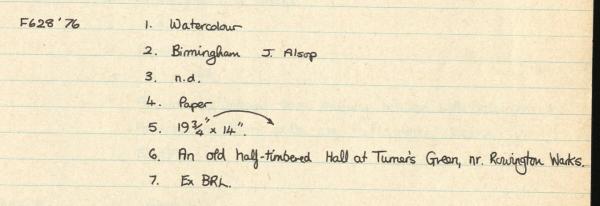 F628'76 1. Watercolour
2. Birmingham J. Alsop
3. n.d.
4. Paper
5. 19 3/4" x 14".
6. An old half-timbered Hall at Turner's Green, nr. Rowington Warks.
7. Ex BRL.